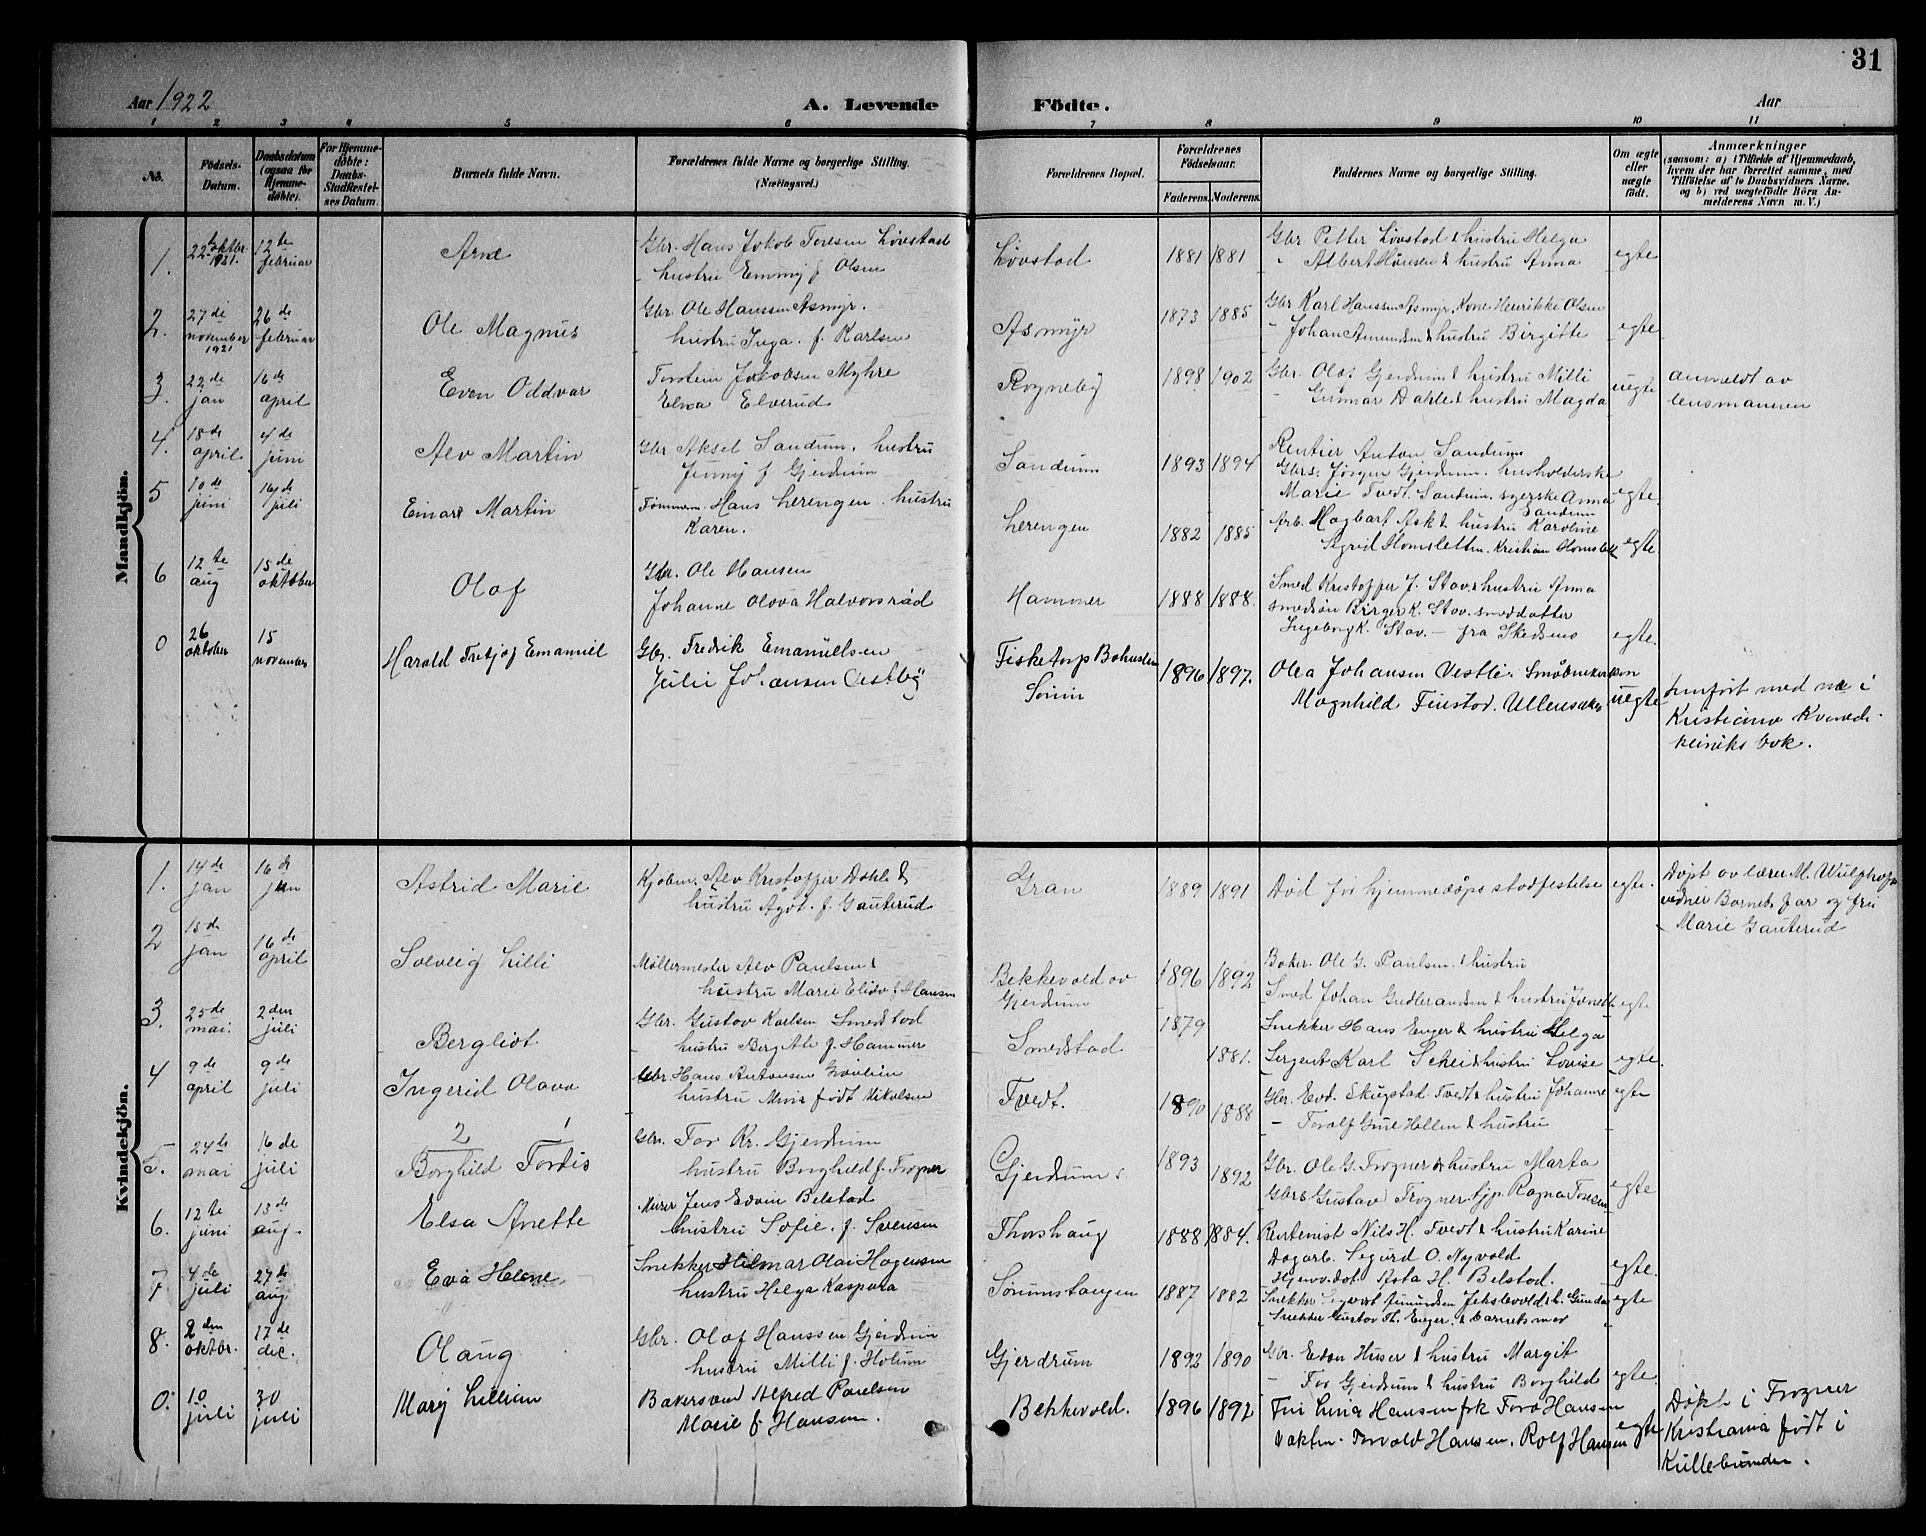 31
Aar 1922 A. Levende Födte. Aar
1 2 3 4 5 6 7 8 9 10 11
No. Födsels-Datum. Daabsdatum (ogsaa for Hjemme-döbte). For Hjemme-döbte: Daabs-Stadfæstel-ses Datum. Barnets fulde Navn. Forældrenes fulde Navne og borgerlige Stilling. (Næringsvei.) Forældrenes Bopæl. Forældrenes Födselsaar. Faderens. Moderens. Faddernes Navne og borgerlige Stilling. Om ægte eller uægte födt. Anmærkninger (saasom: a) i Tilfælde af Hjemmedaab, hvem der har forrettet samme, med Tilföielse af to Daabsvidners Navne, og b) ved uægtefödte Börn Anmelderens Navn m. V.)
Mandkjön.
1. 22de oktbr. 1921. 12te februar Arne Gbr. Hans Jokob Toresen Lövstad hustru Emmy f. Olsen Lövstad 1881 1881 Gbr Petter Lövstad & hustru Helga " Albert Hansen & hustru Anna egte
2. 27de november 1921 26de februar Ole Magnus Gbr Ole Hanssen Asmyr. hustru Inga. f. Karlsen Asmyr 1873 1885 Gbr Karl Hanssen Asmyr, Kone Henrikke Olsen - Johan Amundsen & hustru Birgitte egte
3. 22de jan 16de april Even Oddvar Torstein Jakobsen Myhre Elna Elverud Rogneby 1898 1902 Gbr. Olaf Gjerdrum & hustru Milli - Gunnar Dahle & hustru Magda uegte anmeldt av lensmannen
4. 18de april 4de juni Alv Martin Gbr Aksel Sandum. hustru Jenny f Gjerdrum Sandum 1893 1894 Rentier Anton Sandum Gbrs. Jörgen Gjerdrum. husholderske Marie Tvedt. Sandum. syerske Anna Sandum egte.
5 10de juni 16de juli Einar Martin Tömmerm. Hans Lerengen. hustru Karen. Lerengen 1882 1885 Arb. Hagbart Ask & hustru Karoline Sigrid Homsletten. Kristian Homslett egte
6 12te aug 15de oktober Olaf Gbr. Ole Hansen Johanne Olova Halvorsrød Hammer 1888 1888. Smed Kristoffer J. Stav & hustru Anna smedsön Birger K. Stav. smeddatter Ingeborg K. Stav. - fra Skedsmo egte.
0 26 oktober 15 november Harald Fretjof Emanuel Gbr. Fredrik Emanuelsen Julie Johansen Vestby Fisketorp Bohuslen Sörum 1896 1897. Olea Johansen Vestli. Magnhild Finstad. Ullensaker uegte innfört med no i Kristiania Kvindekliniks bok.
Kvindekjön.
1. 14de jan 16de jan Astrid Marie Kjöbm. Alv Kristoffer Dahle & hustru Agot. f. Gauterud Gran 1889 1891 Död för hjemmedåps stadfestelse egte. Döpt av lærer M. Wulphop vidner Barnets far og fru Marie Gauterud
2 15de jan 16de april Solveig Lilli Möllermester Alv Paulsen & hustru Marie Elida f Hansen Bekkevold av Gjerdrum 1896 1892 Baker. Ole G. Paulsen & hustru Smed Johan Gudbrandsen & hustru Janette egte
3. 25de mai. 2den juli Bergliot Gbr. Gustav Karlsen Smedstad hustru Bergite f. Hammer Smedstad 1879 1881. Snekker Hans Enger & hustru Helga Sergent Karl Schei & hustru Lovise egte
4 9de april 9de juli Ingerid Olava Gbr. Hans Antonsen hustru født Nikolsen Tvedt. 1890 1888 Gbr. Edv. Skugstad Tvedt & hustru Johanne - Torolf & hustru egte
5. 24de mai 16de juli 2 1 Borghild Tordis Gbr. Tor Kr. Gjerdrum hustru Borghild f. Frogner Gjerdrum 1893 1892 Gbr. Ole G. Frogner & hustru Marta Gbrs Gustav Frogner. tjp. Ragna Toresen egte
6. 12te juni 13de aug. Elsa Anette Murer Jens Edvin Belstad hustru Sofie. f. Svensen Thorshaug 1888 1884. Rentenist Nils H. Tvedt & hustru Karine Dagarb. Sigurd O. Nyvold Hjemv. dat. Asta H. Belstad. egte.
7 4de juli 27de aug Eva Helene Snekker Hilmar Olai Hagensen hustru Helga Kaspara Sörumstangen 1887 1882 Snekker Amundsen Jekslevold & h. Gunda Snekker Gustav Th. Enger. & barnets mor egte
8. 2den oktbr. 17de dec. Olaug Gbr. Olaf Hanssen Gjerdrum hustru Milli f. Holum Gjerdrum 1892 1890 Gbr. Edon Huser & hustru Margit - Tor Gjerdrum & hustru Borghild egte.
0. 10 juli 30 juli Mary Lillian Bakersvend Alfred Paulsen Marie f. Hansen. Bekkevold. 1896 1892 Fru Lina Hansen frk Tora Hansen Vaktm. Torvald Hansen. Rolf Hansen egte Döpt i Frogner Kristiania født i Kullebunden.